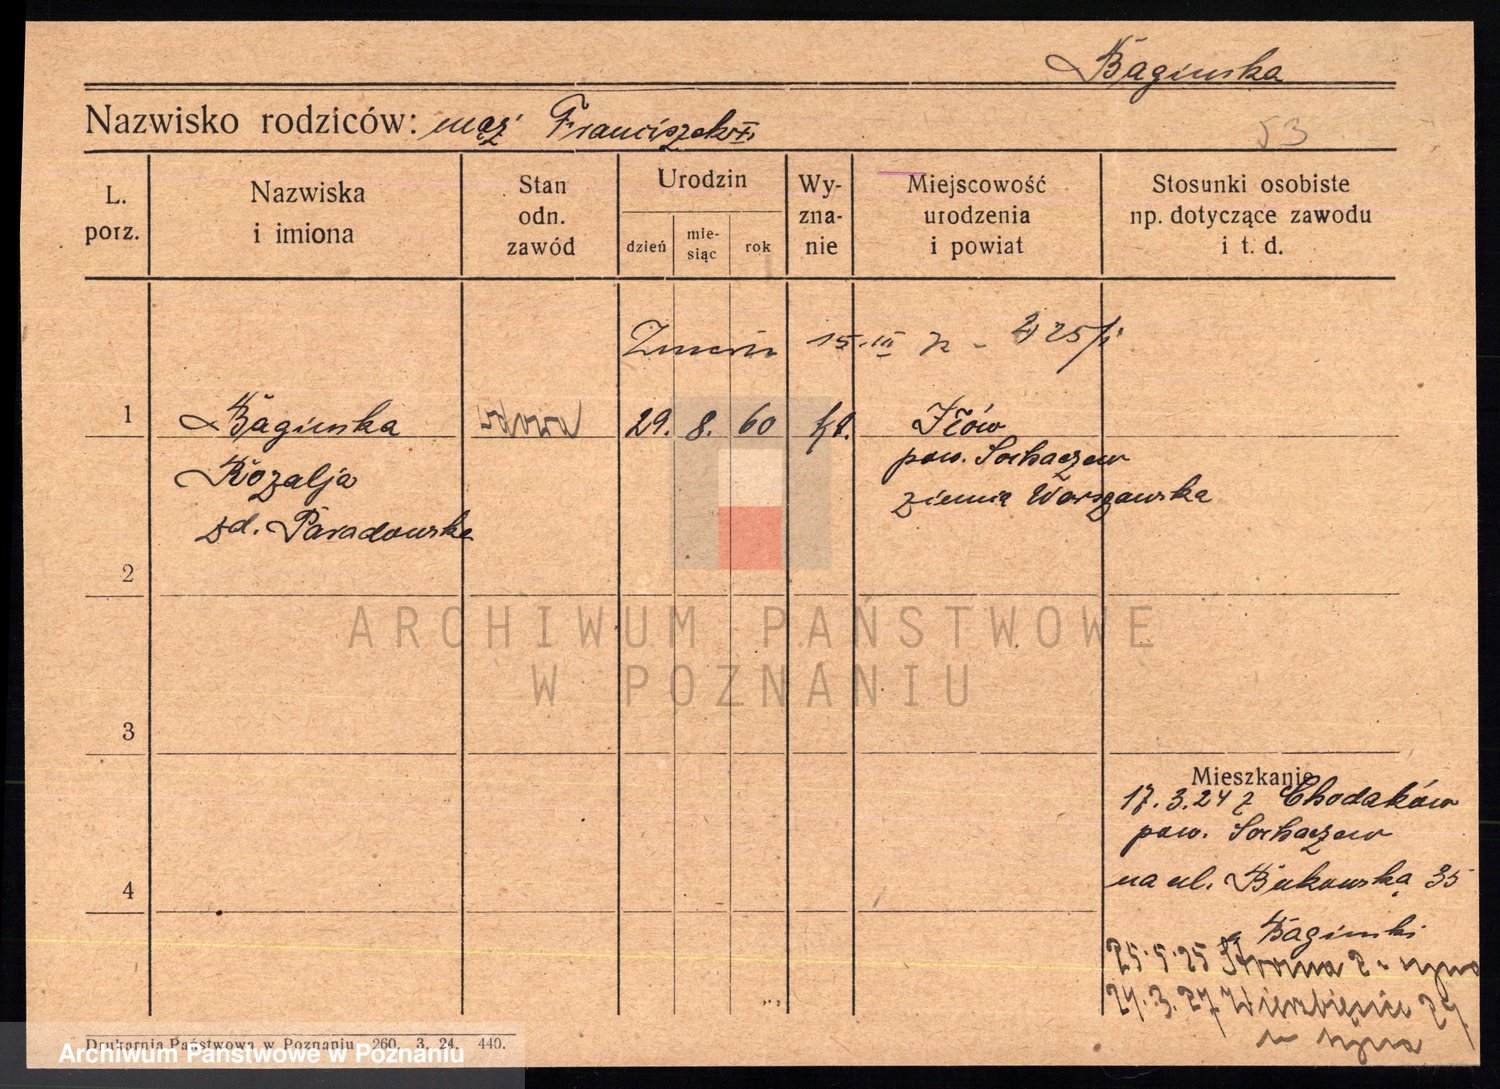 Baginska
Nazwisko rodziców: mąż Franciszek
53
L. porz.
Nazwiska i imiona
Stan odn. zawód
Urodzin
dzień
mie- siąc
rok
Wy- zna- nie
Miejscowość urodzenia i powiat
Stosunki osobiste np. dotyczące zawodu i t. d.
15.III
1
Baginska
wdowa
29. 8. 60
kt.
Iłów
Rozalja
pow. Sochaczew
zd. Paradowska
ziemia Warszawska
2
ARCHIWUM PAŃSTWOWE
W POZNANIU
3
Mieszkanie
17.3.24 z Chodaków
pow. Sochaczew
4
na ul. Bukowska 35
Baginski
25.5.25 Stroma 2 u syna
24.3.27 Wierzbięcie 29
u syna
Drukarnia Państwowa w Poznaniu 260. 3. 24. 440.
Archiwum Państwowe w Poznaniu